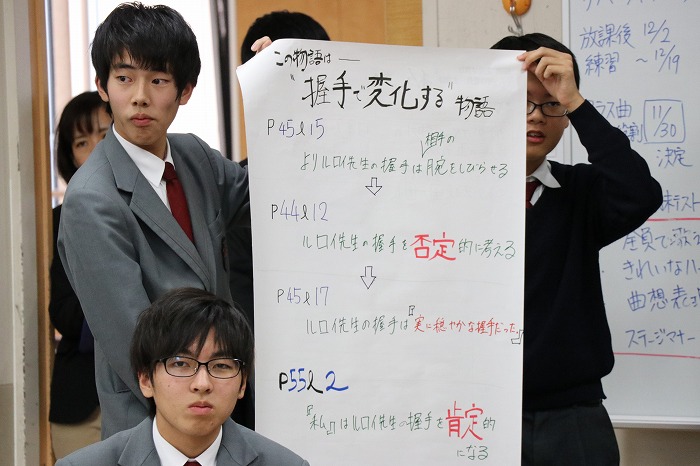 この物語は──
"握手で変化する"物語
P45l15
相手の
よりルロイ先生の握手は腕をしびらせる
⇩
P44l12
ルロイ先生の握手を否定的に考える
⇩
P45l17
ルロイ先生の握手は『実に穏やかな握手だった。』
P55l2
『私』はルロイ先生の握手を肯定的
になる
放課後 12/2
練習 ~12/19
ラス曲
11/30
決定
末テスト
全員で
きれいな
曲想表
ステージマナー